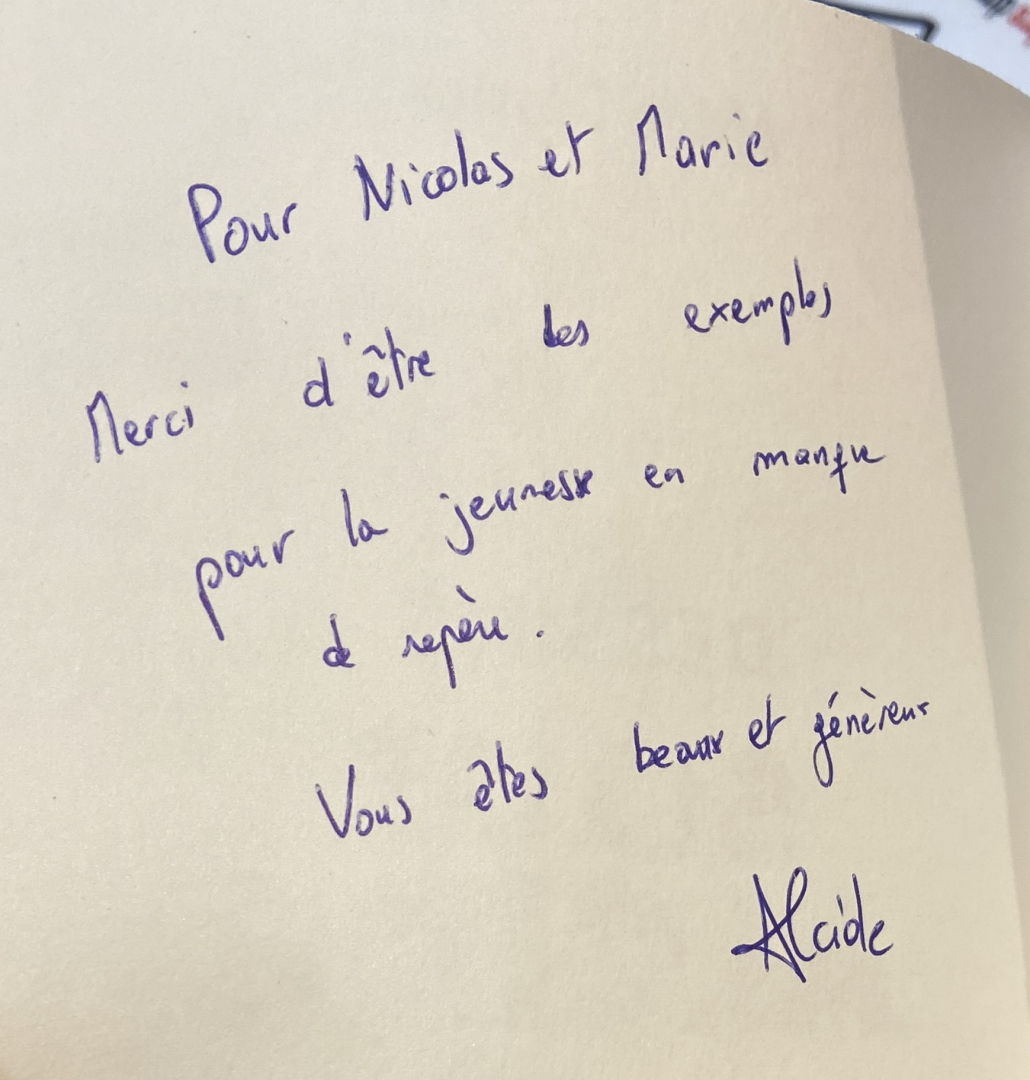 Pour Nicolas et Marie
Merci d'être des exemples
pour la jeunesse en manque
de repère.
Vous êtes beaux et généreux
Alcide